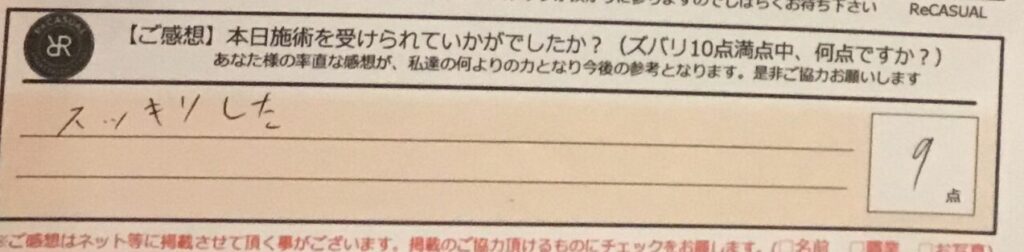 ますのでしばらくお待ち下さい ReCASUAL
ReCASUAL
RR
【ご感想】本日施術を受けられていかがでしたか？（ズバリ10点満点中、何点ですか？）
あなた様の率直な感想が、私達の何よりの力となり今後の参考となります。是非ご協力お願いします
スッキリした
9
点
※ご感想はネット等に掲載させて頂く事がございます。掲載のご協力頂けるものにチェックをお願します。(□名前 □職業 □お写真)